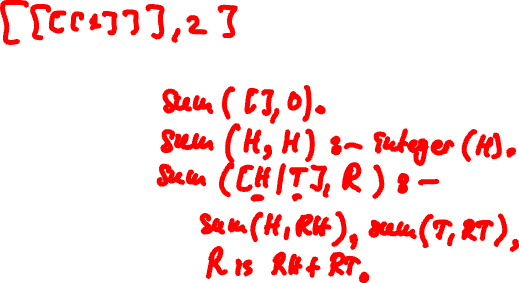 [[[[1]]],2]
sum([],0).
sum(H,H) :- integer(H).
sum([H|T],R) :-
sum(H,RH), sum(T,RT),
R is RH+RT.